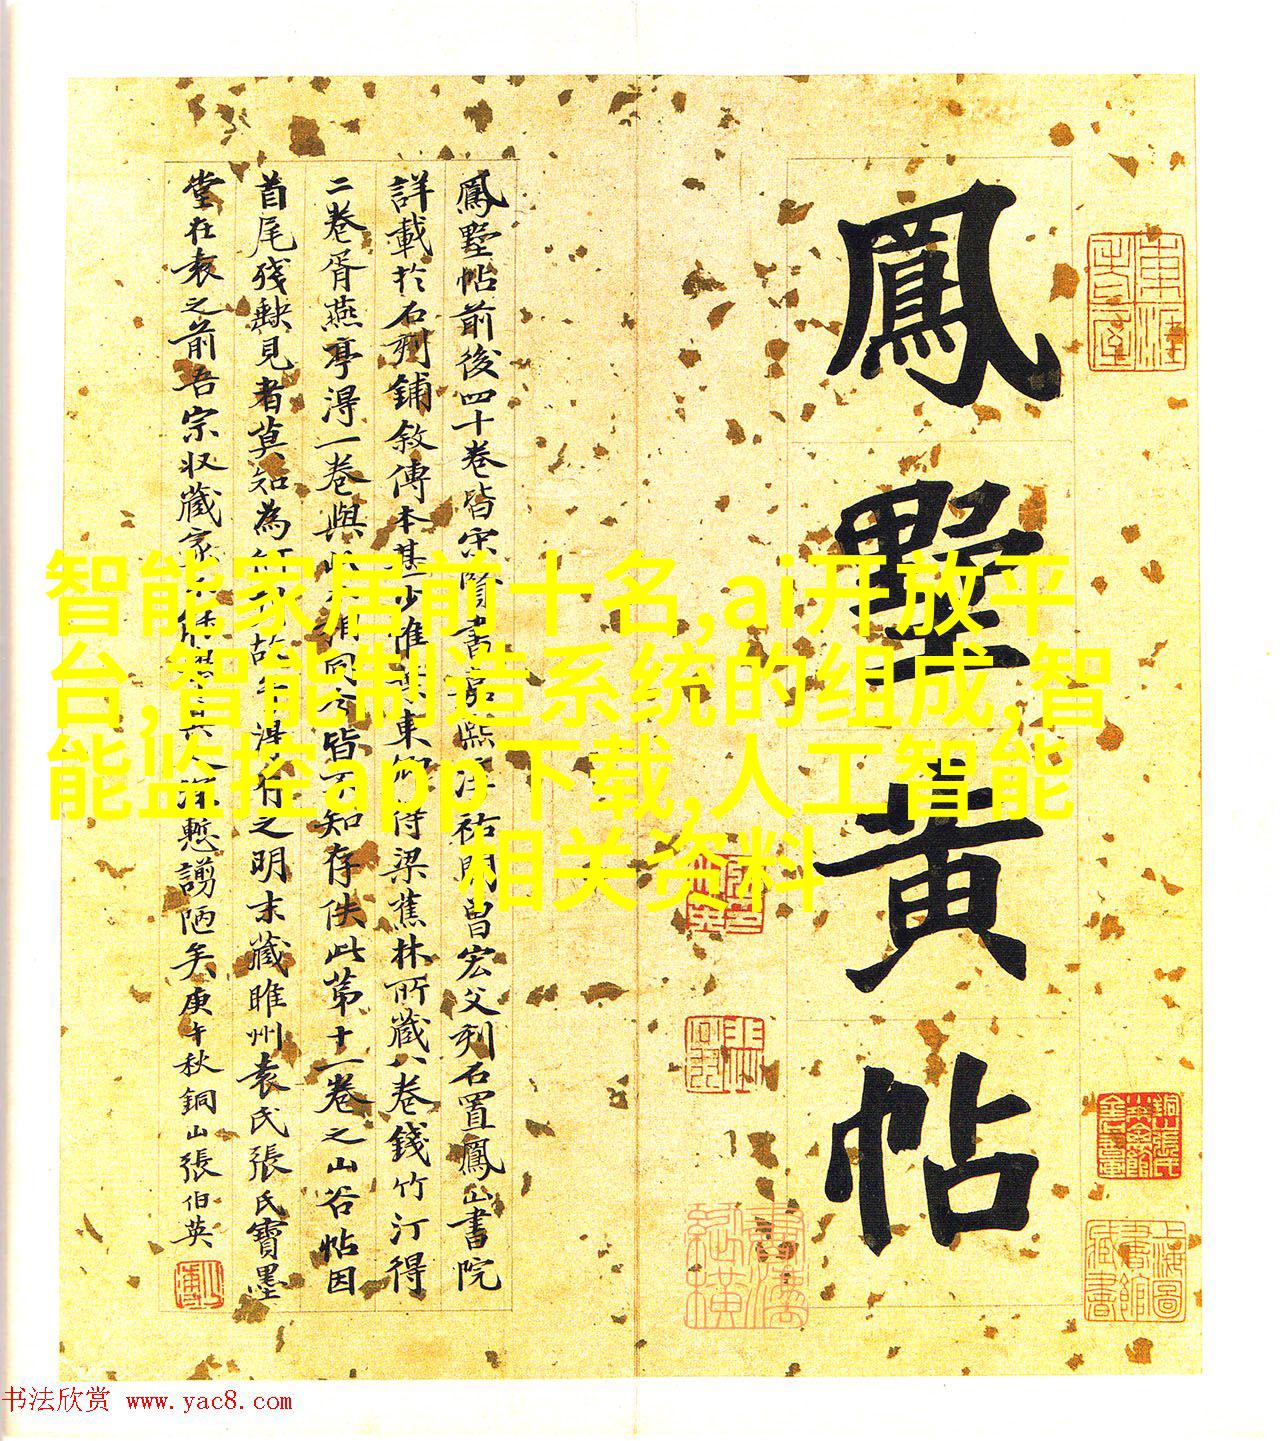 鳳
墅
黄
帖
鳳墅帖前後四十卷皆宋賢書嘉熙淳祐間曾宏父刻石置鳳山書院
詳載於石刻鋪敘傳本甚少惟 東卿侍梁蕉林所藏八卷錢竹汀得
二卷胥燕亭得一卷與此 同今皆不知存佚此第十一卷之山谷帖因
首尾殘缺見者莫知為何 故 得 有之明末藏睢州袁氏張氏寶墨
堂在袁之前吾宗収藏家 人深慙謭陋矣庚午秋銅山張伯英
智能家居前十名,ai开放平
台,智能制造系统的组成,智
能监控app下载,人工智能
相关资料
上海圖
書館
藏書
书法欣赏 www.yac8.com